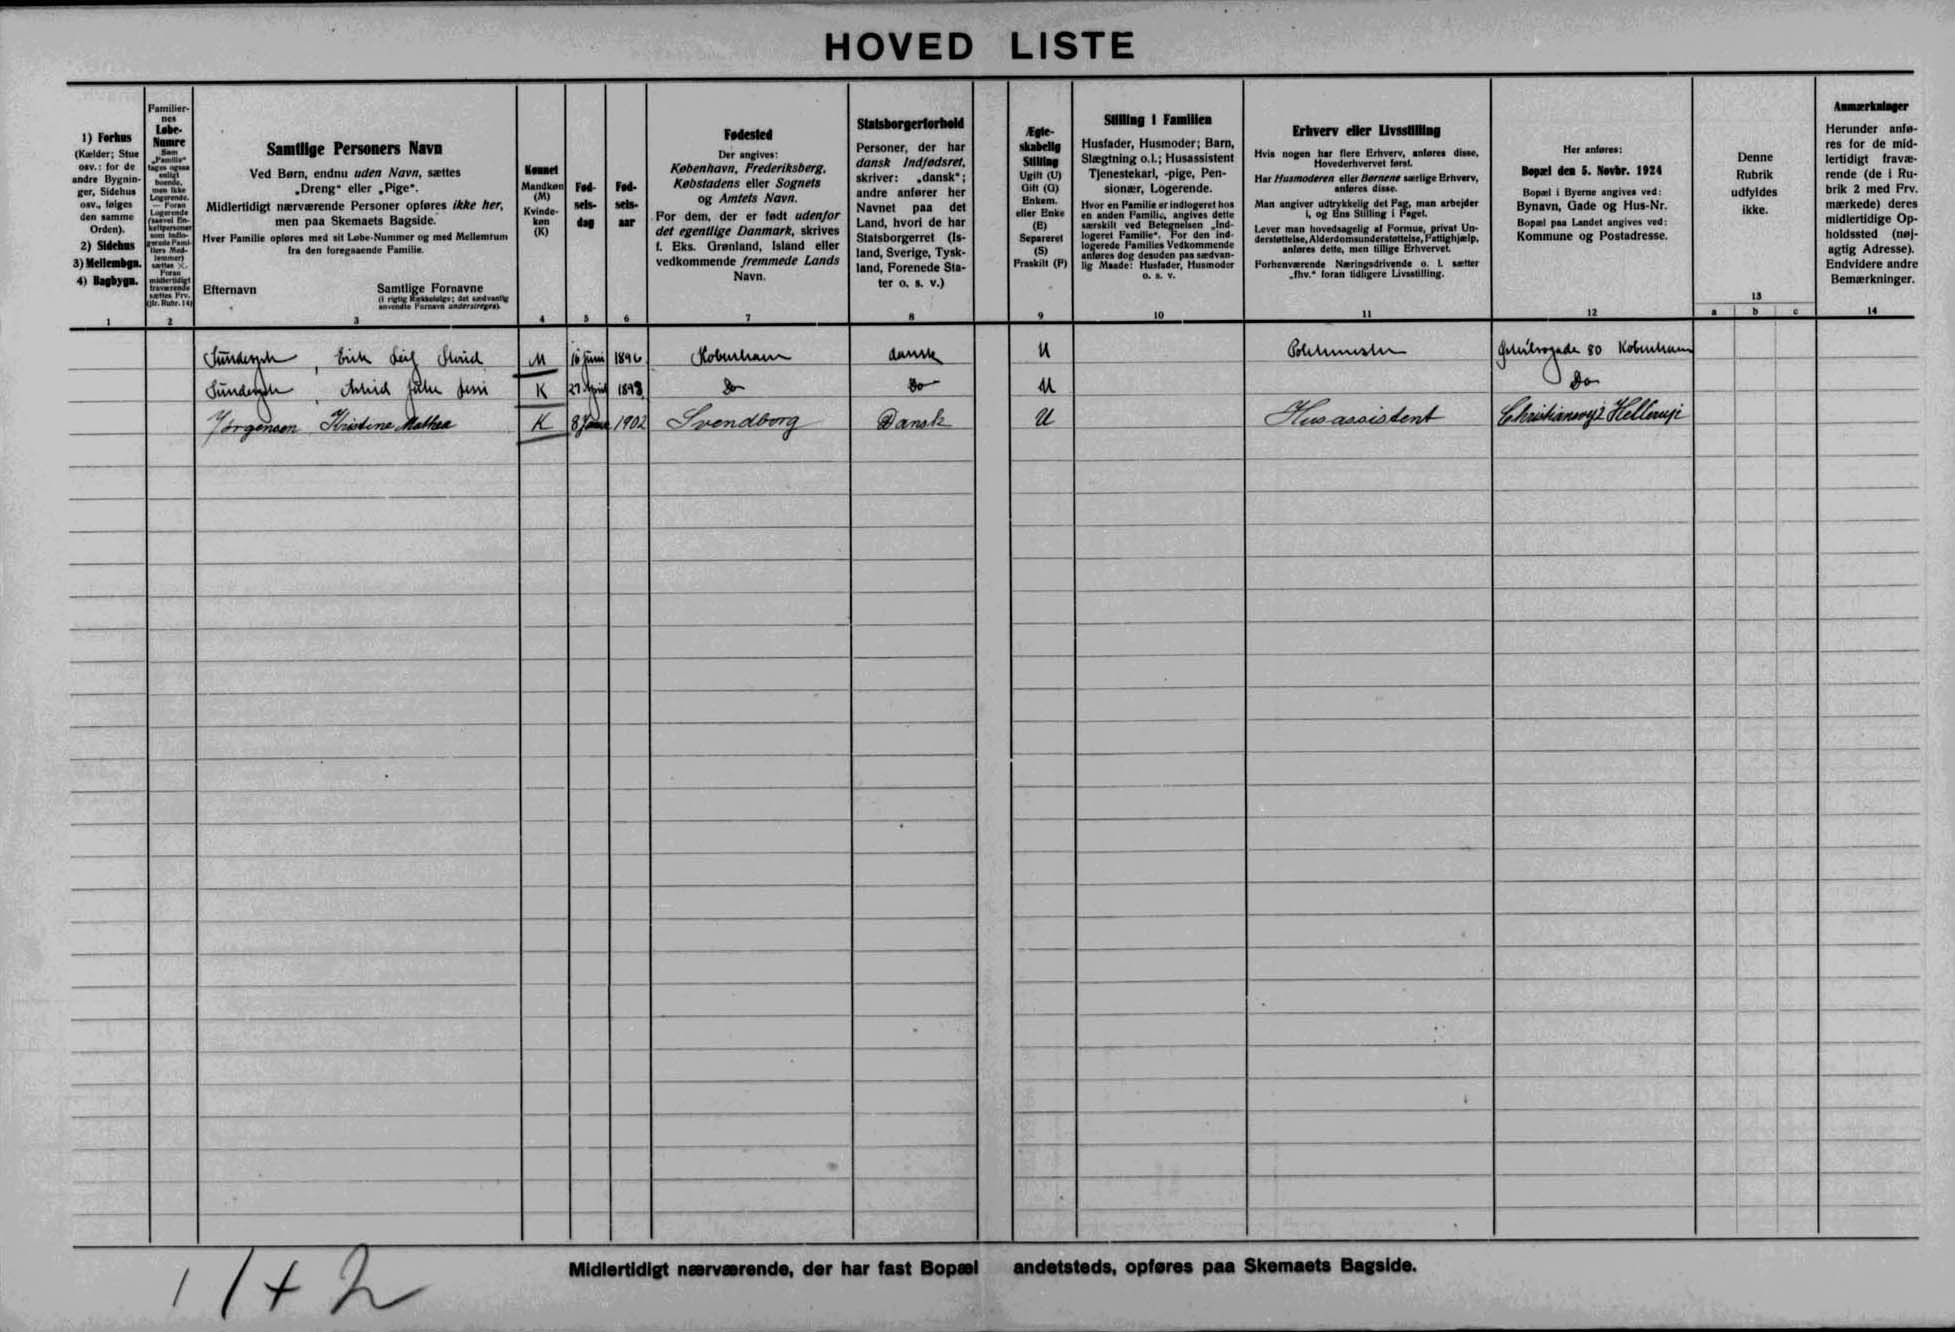 HOVED LISTE
1) Forhus
(Kælder; Stue
osv.: for de
andre Bygnin-
ger, Sidehus
osv., følges
den samme
Orden).
2) Sidehus
3) Mellembgn.
4) Bagbygn.
1
Familier-
nes
Løbe-
Numre
Sam
„Familie"
tages ogsaa
enligt
boende,
men ikke
Logerende.
— Foran
Logerende
2
Samtlige Personers Navn
Ved Børn, endnu uden Navn, sættes
„Dreng" eller „Pige".
Midlertidigt nærværende Personer opføres ikke her,
men paa Skemaets Bagside.
Hver Familie opføres med sit Løbe-Nummer og med Mellemrum
fra den foregaaende Familie.
Efternavn
Samtlige Fornavne
(i rigtig Rækkefølge; det sædvanlig
anvendte Fornavn understreges).
3
Kønnet
Mandkøn
(M)
Kvinde-
køn
(K)
4
Fød-
sels-
dag
5
Fød-
sels-
aar
6
Fødested
Der angives:
København, Frederiksberg,
Købstadens eller Sognets
og Amtets Navn.
For dem, der er født udenfor
det egentlige Danmark, skrives
f. Eks. Grønland, Island eller
vedkommende fremmede Lands
Navn.
7
Statsborgerforhold
Personer, der har
dansk Indfødsret,
skriver: „dansk";
andre anfører her
Navnet paa det
Land, hvori de har
Statsborgerret (Is-
land, Sverige, Tysk-
land, Forenede Sta-
ter o. s. v.)
8
Ægte-
skabelig
Stilling
Ugift (U)
Gift (G)
Enkem.
eller Enke
(E)
Separeret
(S)
Fraskilt (F)
9
Stilling i Familien
Husfader, Husmoder; Barn,
Slægtning o.l.; Husassistent
Tjenestekarl, -pige, Pen-
sionær, Logerende.
Hvor en Familie er indlogeret hos
en anden Familie, angives dette
særskilt ved Betegnelsen „Ind-
logeret Familie". For den ind-
logerede Families Vedkommende
anføres dog desuden paa sædvan-
lig Maade: Husfader, Husmoder
o. s. v.
10
Erhverv eller Livsstilling
Hvis nogen har flere Erhverv, anføres disse,
Hovederhvervet først.
Har Husmoderen eller Børnene særlige Erhverv,
anføres disse.
Man angiver udtrykkelig det Fag, man arbejder
i, og Ens Stilling i Faget.
Lever man hovedsagelig af Formue, privat Un-
derstøttelse, Alderdomsunderstøttelse, Fattighjælp,
anføres dette, men tillige Erhvervet.
Forhenværende Næringsdrivende o. l. sætter
„fhv." foran tidligere Livsstilling.
11
Her anføres:
Bopæl den 5. Novbr. 1924
Bopæl i Byerne angives ved:
Bynavn, Gade og Hus-Nr.
Bopæl paa Landet angives ved:
Kommune og Postadresse.
12
Denne
Rubrik
udfyldes
ikke.
13
a b c
Anmærkninger
Herunder anfø-
res for de mid-
lertidigt fravæ-
rende (de i Ru-
brik 2 med Frv.
mærkede) deres
midlertidige Op-
holdssted (nøj-
agtig Adresse).
Endvidere andre
Bemærkninger.
14
Erik Leif M 16 Juni 1896 København dansk U 80 København
K 1898 Do Do U Do
Jørgensen Kristine Mathea K 8 1902 Svendborg Dansk U Husassistent Hellerup
Midlertidigt nærværende, der har fast Bopæl andetsteds, opføres paa Skemaets Bagside.
1 1+2